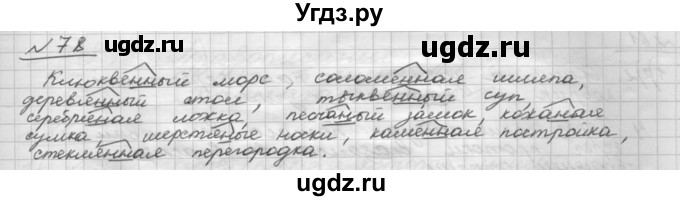 Угдз.ру
№78 ugdz.ru ugdz.ru
Клюквенный морс, соломенная шляпа,
деревянный стол, тыквенный суп,
серебряная ложка, песчаный замок, кожаная
сумка, шерстяные носки, каменная постройка,
стеклянная перегородка.
ugdz.ru ugdz.ru
ugdz.ru